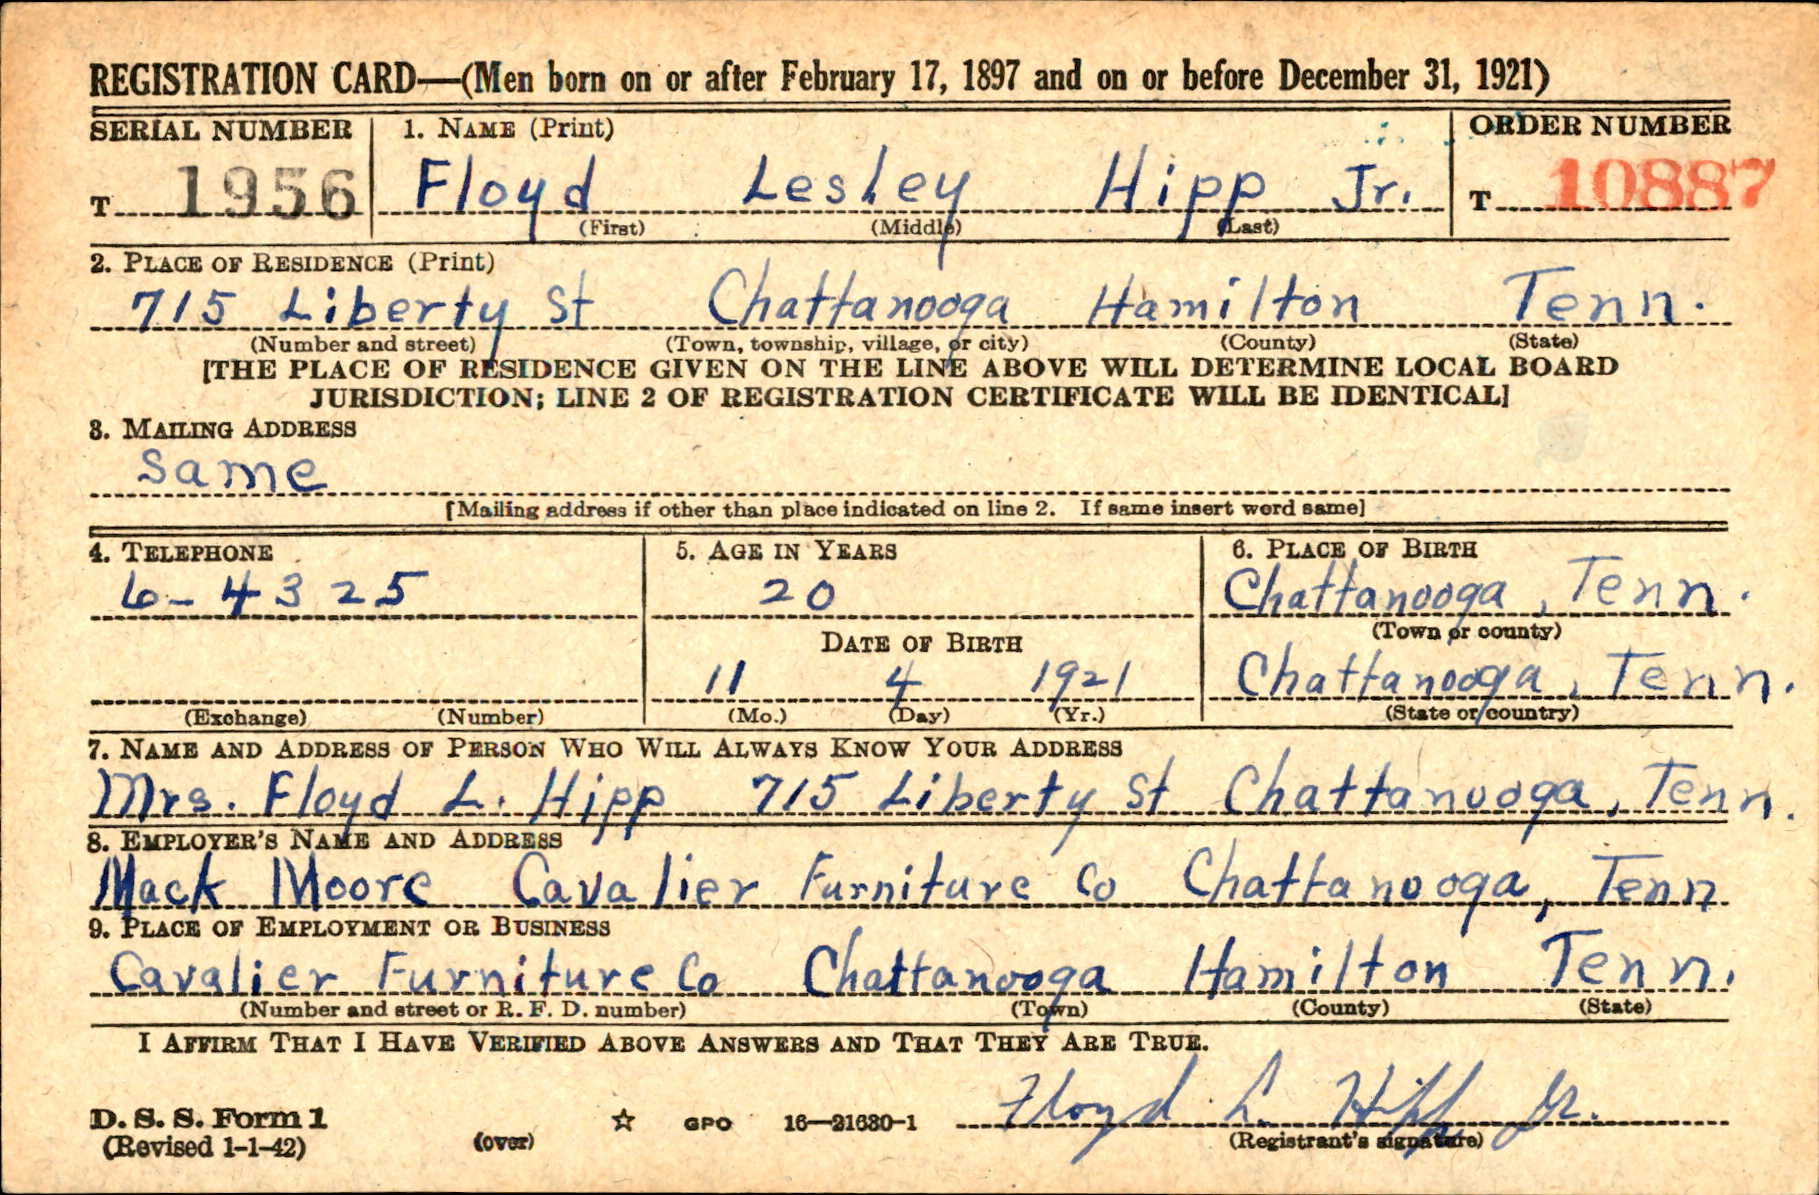 REGISTRATION CARD—(Men born on or after February 17, 1897 and on or before December 31, 1921)
SERIAL NUMBER 1. NAME (Print) ORDER NUMBER
T 1956 Floyd Lesley Hipp Jr. T 10887
(First) (Middle) (Last)
2. PLACE OF RESIDENCE (Print)
715 Liberty St Chattanooga Hamilton Tenn.
(Number and street) (Town, township, village, or city) (County) (State)
[THE PLACE OF RESIDENCE GIVEN ON THE LINE ABOVE WILL DETERMINE LOCAL BOARD
JURISDICTION; LINE 2 OF REGISTRATION CERTIFICATE WILL BE IDENTICAL]
3. MAILING ADDRESS
same
[Mailing address if other than place indicated on line 2. If same insert word same]
4. TELEPHONE 5. AGE IN YEARS 6. PLACE OF BIRTH
6-4325 20 Chattanooga, Tenn.
(Town or county)
DATE OF BIRTH
11 4 1921 Chattanooga, Tenn.
(Exchange) (Number) (Mo.) (Day) (Yr.) (State or country)
7. NAME AND ADDRESS OF PERSON WHO WILL ALWAYS KNOW YOUR ADDRESS
Mrs. Floyd L. Hipp 715 Liberty St Chattanooga, Tenn.
8. EMPLOYER'S NAME AND ADDRESS
Mack Moore Cavalier Furniture Co Chattanooga, Tenn
9. PLACE OF EMPLOYMENT OR BUSINESS
Cavalier Furniture Co Chattanooga Hamilton Tenn.
(Number and street or R. F. D. number) (Town) (County) (State)
I AFFIRM THAT I HAVE VERIFIED ABOVE ANSWERS AND THAT THEY ARE TRUE.
Floyd L. Hipp Jr.
D. S. S. Form 1 GPO 16—21630-1
(Revised 1-1-42) (over) (Registrant's signature)